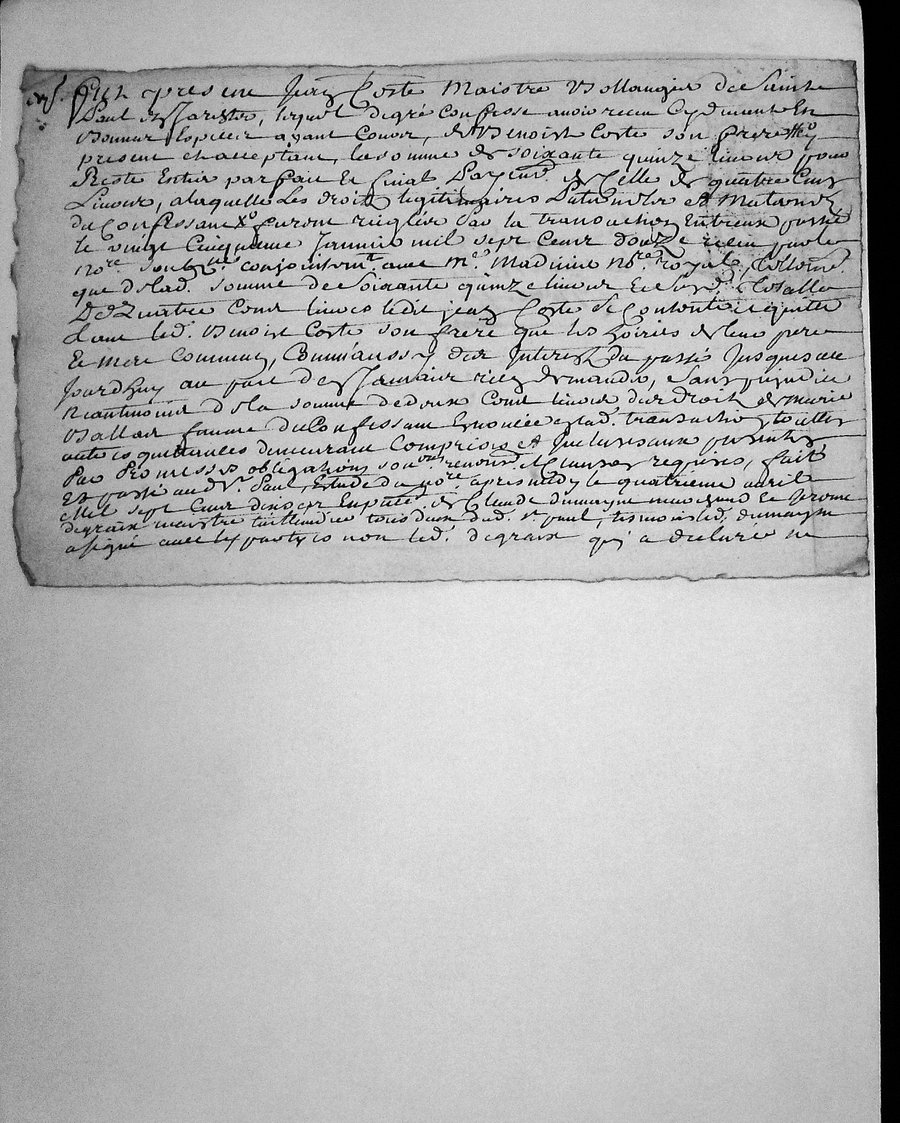 Fust present Jean Coste Maistre Bollanger de Saint
Paul en Jarestz, lequel de gré confesse avoir receu cydevant En
bonnes Espesses ayant Cours, de Benoist Coste son frere
present et acceptant, la somme de soixante quinze livres pour
Reste Entier parfait Et final payem.t de celle de quatre Cens
Livres, a laquelle Les droits legitimaires Paternels Et Maternels
du Confessant furent reiglés par la transaction Entreux passé
le vingt Cinquieme Janvier mil sept Cens douze receu par le
no.re soubz.né conjointem.t avec m.e Madinier no.re royal
que de lad. somme de soixante quinze livres de
de quatre Cens livres ledit jean Coste se contente et quitte
tant led. Benoist Coste son frere que les hoiries de leur pere
Et mere Communs, Comm'aussy des Interests du passé Jusques a ce
Jourdhuy au fait desquels rien demander, sans prejudice
neantmoins de la somme de deux Cens livres des droits de marie
femme du Confessant Enoncée en lad. transaction, touttes
autres quittances demeurant Comprises Et Incluses aux presentes
Par Promesses obligations renons. Et clauses requises, fait
Et passé aud. St. Paul, Estude du no.re apres midy le quatrieme avril
Mil sept Cens dixsept En pnce. de Claude dumaigne marchand Et Jerome
degraix maistre taillandier tous deux dud. st. paul, tesmoins led. dumaigne
a signé avec les partyes non led. degraix qui a declaré ne